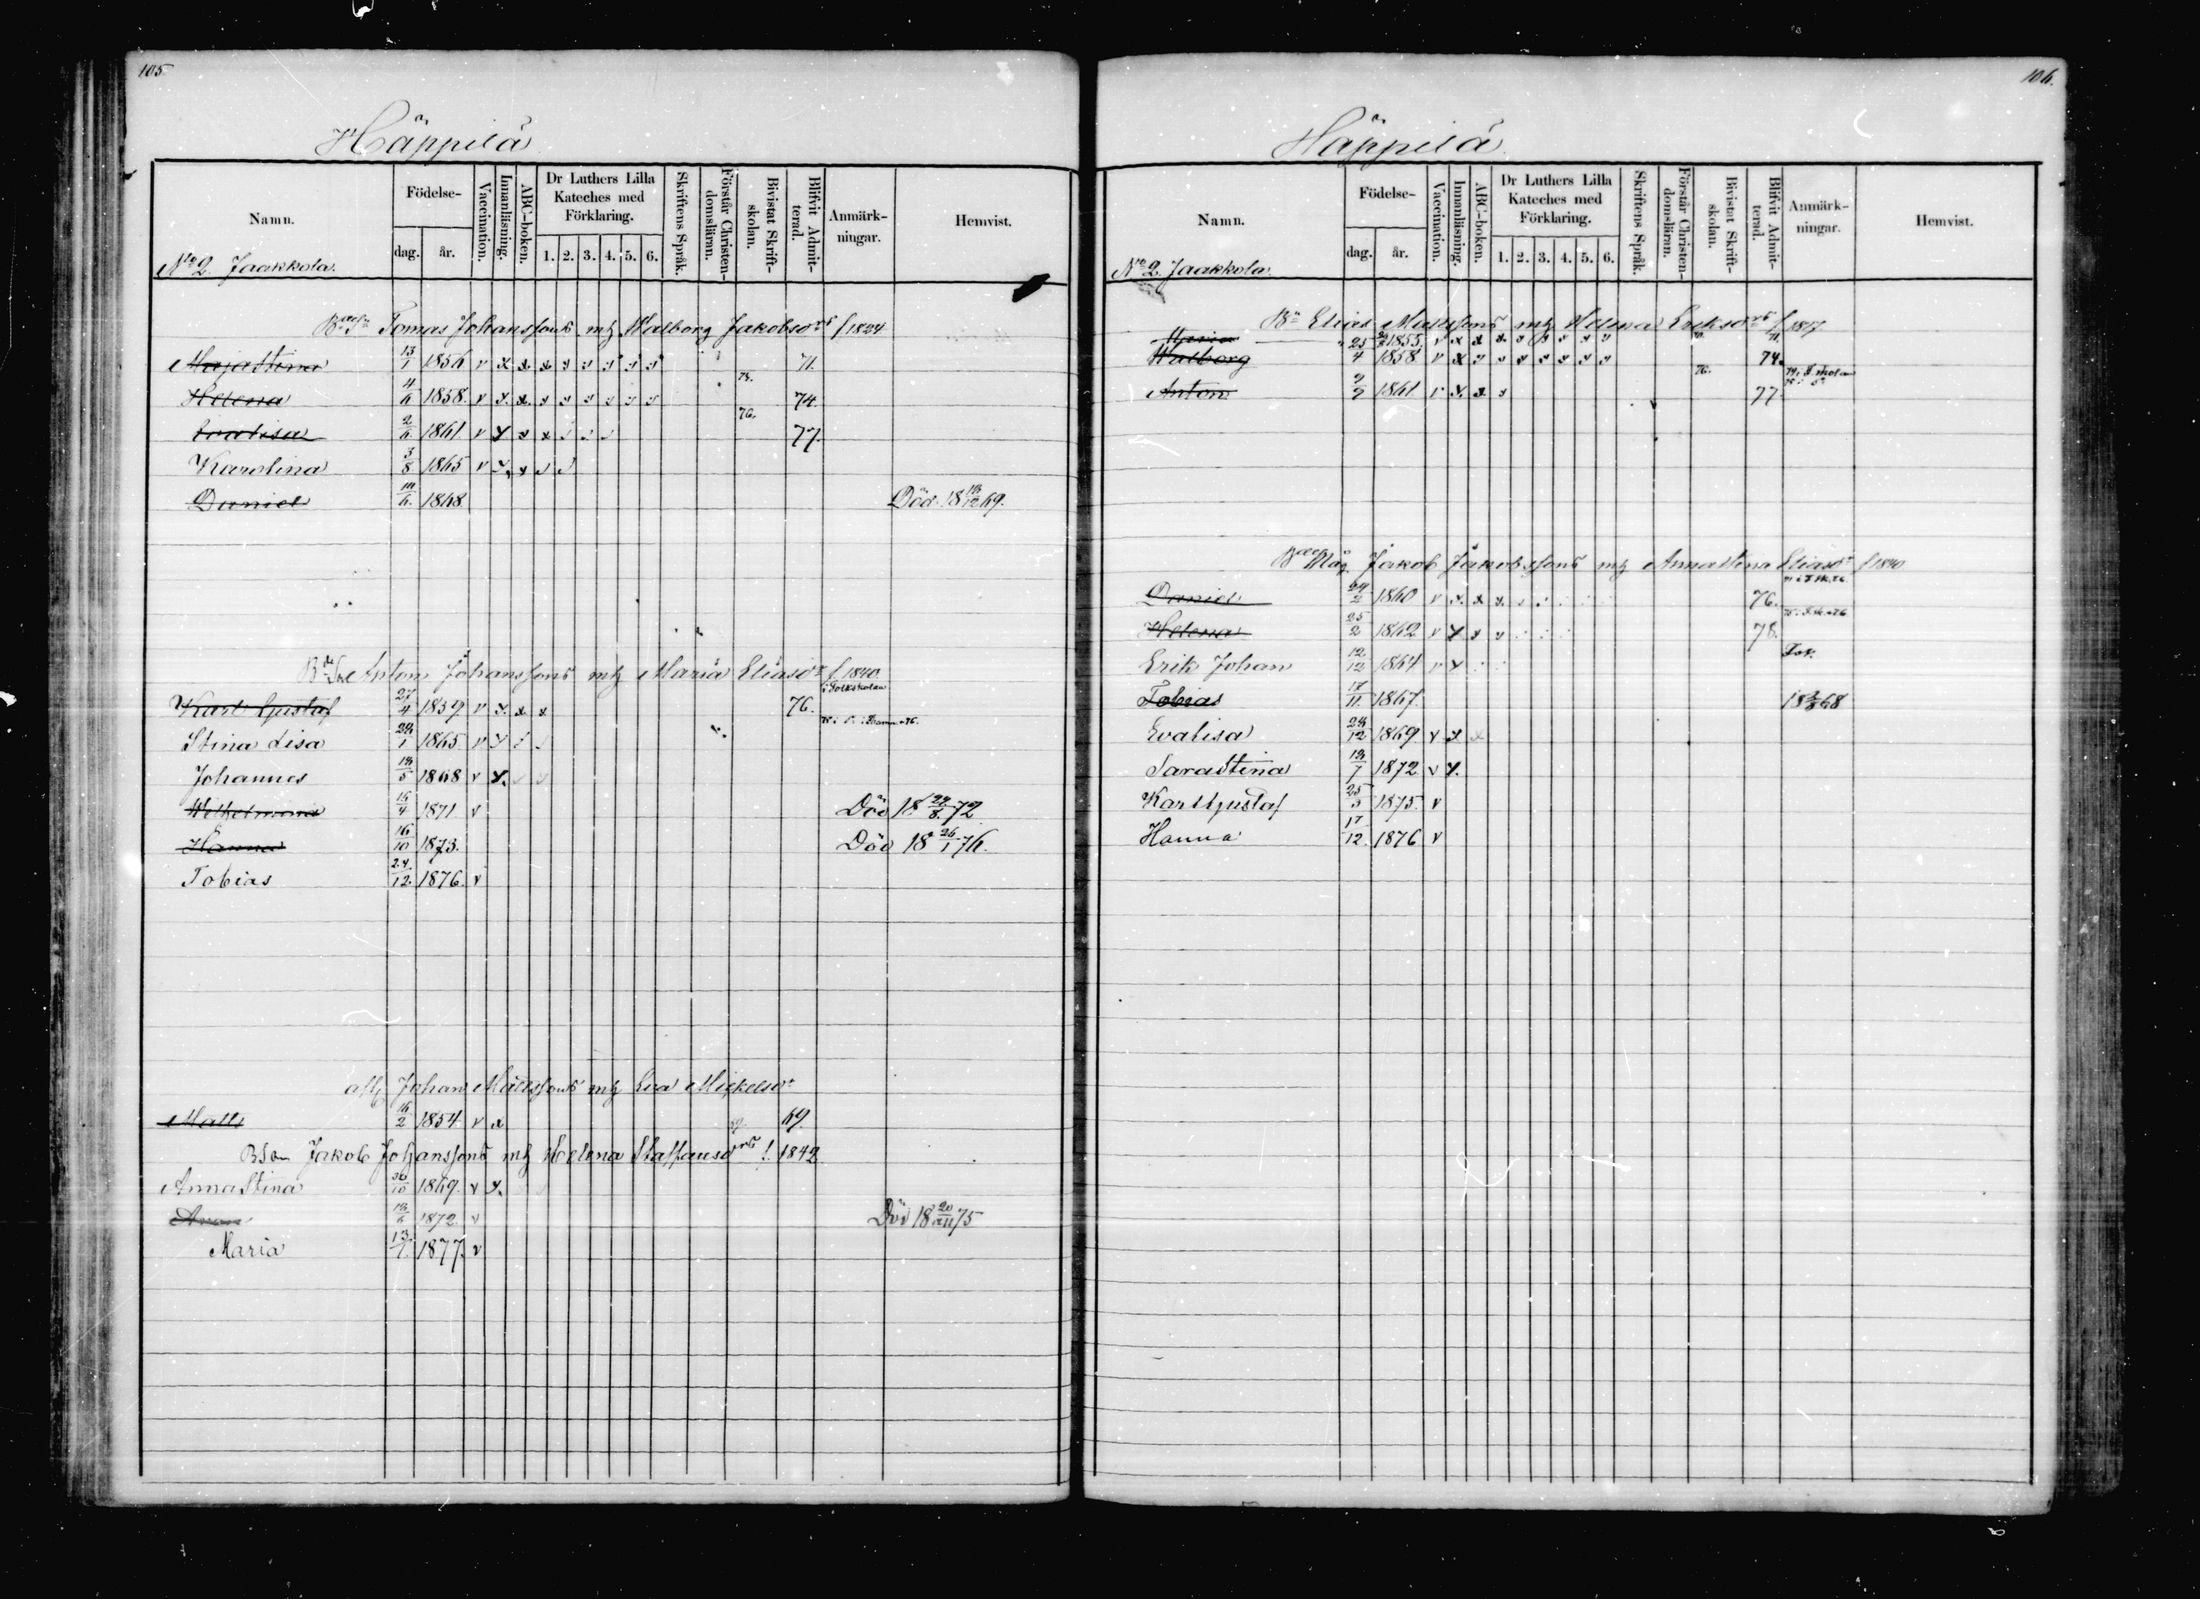 105.
Häppilä
Namn.
Födelse-
dag. år.
Vaccination.
Innanläsning.
ABC-boken.
Dr Luthers Lilla Kateches med Förklaring.
1. 2. 3. 4. 5. 6.
Skriftens Språk.
Förstår Christen-domsläran.
Bivistat Skrift-skolan.
Blifvit Admit-terad.
Anmärk-ningar.
Hemvist.
No 2 Jaakkola.
Tomas Johanssons mh Walborg Jakobsdrs f 1824
Majastina 13/1 1856 v x x x 71.
74.
Helena 4/6 1858. v x. x. 74.
76.
Evalisa 2/6 1861 v x x x 77.
Karolina 3/8 1865 v x x
Daniel 1868. Död 18 69.
Anton Johanssons mh Maria Eliasdr f. 1840.
i Folkskolan
Karl Gustaf 27/4 1859 v x. x. x 76.
Stina Lisa 1865 v x
Johannes 1868 v x.
Wilhelmina 1871 v Död 18 72
Hanna 16/10 1873. Död 18 26/1 76.
Tobias 24/12 1876. v
Johan Mattssons mh Eva Mickelsdr
Matts 16/2 1854 v x 69.
Jakob Johanssons mh Helena Staffansdrs f. 1842
AnnaStina 30/10 1869. v x.
1872. v Död 18 20/XII 75
Maria 13/1 1877. v
106.
Häppilä
Namn.
Födelse-
dag. år.
Vaccination.
Innanläsning.
ABC-boken.
Dr Luthers Lilla Kateches med Förklaring.
1. 2. 3. 4. 5. 6.
Skriftens Språk.
Förstår Christen-domsläran.
Bivistat Skrift-skolan.
Blifvit Admit-terad.
Anmärk-ningar.
Hemvist.
No 2 Jaakkola
Elias Mattssons mh Helena Eriksdrs f 1817
Maria 1855. v x x x 71.
Walborg 25/4 1858 v x 74.
76.
Anton 1861 v x. x 77.
Måg Jakob Jakobssons mh Annastina Eliasdr f 1840
Daniel 24/2 1860 v x. x x. 76.
Helena 25/2 1862 v x x x 78.
Erik Johan 12/12 1864 v x
Tobias 17/11 1867. 18 68
Evalisa 1869. v x x
Sarastina 1872 v x.
Karl Gustaf 1875. v
Hanna 17/12. 1876 v